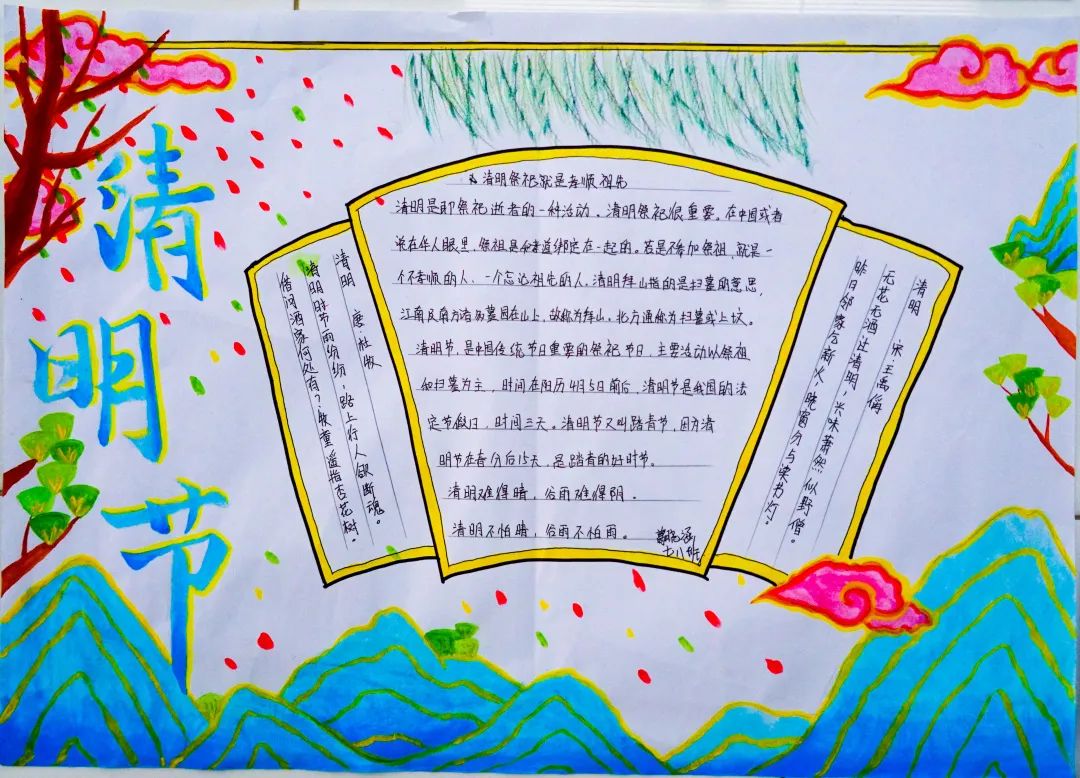 清明节
清明祭祀就是孝顺祖先
清明是即祭祀逝者的一种活动、清明祭祀很重要。在中国或者
说在华人眼里、祭祖是和孝道绑定在一起的。若是不参加祭祖、就是一
个不孝顺的人、一个忘记祖先的人。清明拜山指的是扫墓的意思,
江南及南方诸多墓园在山上、故称为拜山。北方通称为扫墓或上坟。
清明节,是中国传统节日重要的祭祀节日,主要活动以祭祖
和扫墓为主,时间在阳历4月5日前后,清明节是我国的法
定节假日,时间三天。清明节又叫踏青节,因为清
明节在春分后15天,是踏青的好时节。
清明难得晴,谷雨难得阴。
清明不怕晴,谷雨不怕雨。
清明 唐·杜牧
清明时节雨纷纷,路上行人欲断魂。
借问酒家何处有?牧童遥指杏花树。
清明 宋 王禹偁
无花无酒过清明,兴味萧然似野僧。
昨日邻家乞新火,晓窗分与读书灯。